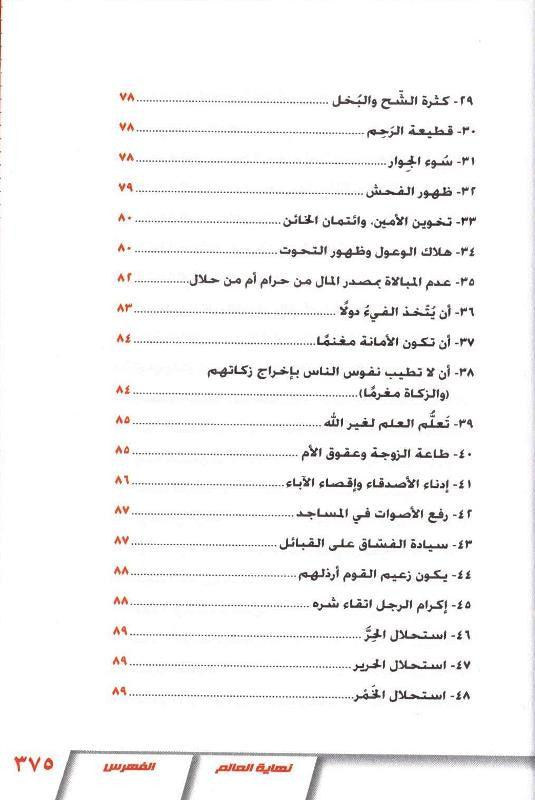 ٢٩- كثرة الشّح والبُخل ........ ٧٨
٣٠- قطيعة الرَحِم ........ ٧٨
٣١- سُوء الجِوار ........ ٧٨
٣٢- ظهور الفحش ........ ٧٩
٣٣- تخوين الأمين، وائتمان الخائن ........ ٨٠
٣٤- هلاك الوعول وظهور التحوت ........ ٨٠
٣٥- عدم المبالاة بمصدر المال من حرام أم من حلال ........ ٨٢
٣٦- أن يُتّخذ الفيءُ دولًا ........ ٨٣
٣٧- أن تكون الأمانة مغنمًا ........ ٨٤
٣٨- أن لا تطيب نفوس الناس بإخراج زكاتهم
(والزكاة مغرمًا) ........ ٨٤
٣٩- تَعلُّم العلم لغير الله ........ ٨٥
٤٠- طاعة الزوجة وعقوق الأم ........ ٨٥
٤١- إدناء الأصدقاء وإقصاء الآباء ........ ٨٦
٤٢- رفع الأصوات في المساجد ........ ٨٧
٤٣- سيادة الفسّاق على القبائل ........ ٨٧
٤٤- يكون زعيم القوم أرذلهم ........ ٨٨
٤٥- إكرام الرجل اتقاء شره ........ ٨٨
٤٦- استحلال الحِرَّ ........ ٨٩
٤٧- استحلال الحرير ........ ٨٩
٤٨- استحلال الخَمْر ........ ٨٩
نهاية العالم الفهرس ٣٧٥